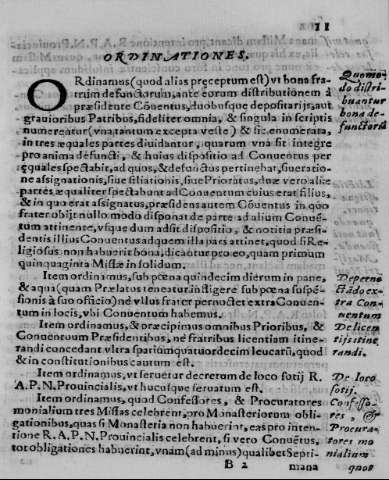 11
ORDINATIONES.
ORdinamus (quod alias præceptum est) vt bona fra-
trum defunctorum, ante eorum distributionem à
præsidente Cōuentus, duobusque depositarijs, aut
grauioribus Patribus, fideliter omnia, & singula in scriptis
numerentur (vna tantum excepta veste) & sic enumerata,
in tres æquales partes diuidantur, quarum vna sit integre
pro anima defuncti, & huius dispositio ad Conuentus per
tęquales spectabit, ad quos, & defunctus pertinebat, siue ratio-
ne assignationis, siue filiationis, siue Prioratus, duæ vero aliæ
partes æqualiter spectabunt ad Conuentum cuius erat filius,
& in quo erat assignatus, præsidens autem Cōuentus in quo
frater obijt nullo modo disponat de parte ad alium Conuē-
tum attinente, vsque dum adsit dispositio, & notitia præsi-
dentis illius Conuentus ad quem illa pars attinet, quod si Re-
ligiosus non habuerit bona, dicantur pro eo, quam primum
quinquaginta Missæ in solidum.
Item ordinamus, sub pœna quindecim dierum in pane,
& aqua (quam Prælatus teneatur infligere sub pœna suspē-
sionis à suo officio) ne vllus frater pernoctet extra Conuen-
tum in locis, vbi Conuentum habemus.
Item ordinamus, & præcipimus omnibus Prioribus, &
Conuentuum Præsidentibus, ne fratribus licentiam itine-
randi concedant vltra spatium quatuordecim leucarū, quod
& in constitutionibus cautum est.
Item ordinamus, vt seruetur decretum de loco sotij R.
A. P. N. Prouincialis, vt hucusque seruatum est.
Item ordinamus, quod Confessores, & Procuratores
monialium tres Missas celebrent, pro Monasteriorum obli-
gationibus, quas si Monasteria non habuerint, eas pro inten-
tione R. A. P. N. Prouincialis celebrent, si vero Conuētus,
tot obligationes habuerint, vnam (ad minus) qualibet Septi-
B 2 mana
Quomo-
do distri-
buantur
bona de-
functorū
De perno
ctādo ex-
tra Con-
uentum
De licen
tijs itine
randi.
De loco
sotij.
Confesso-
res, &
Procura-
tores mo
nialium
quot